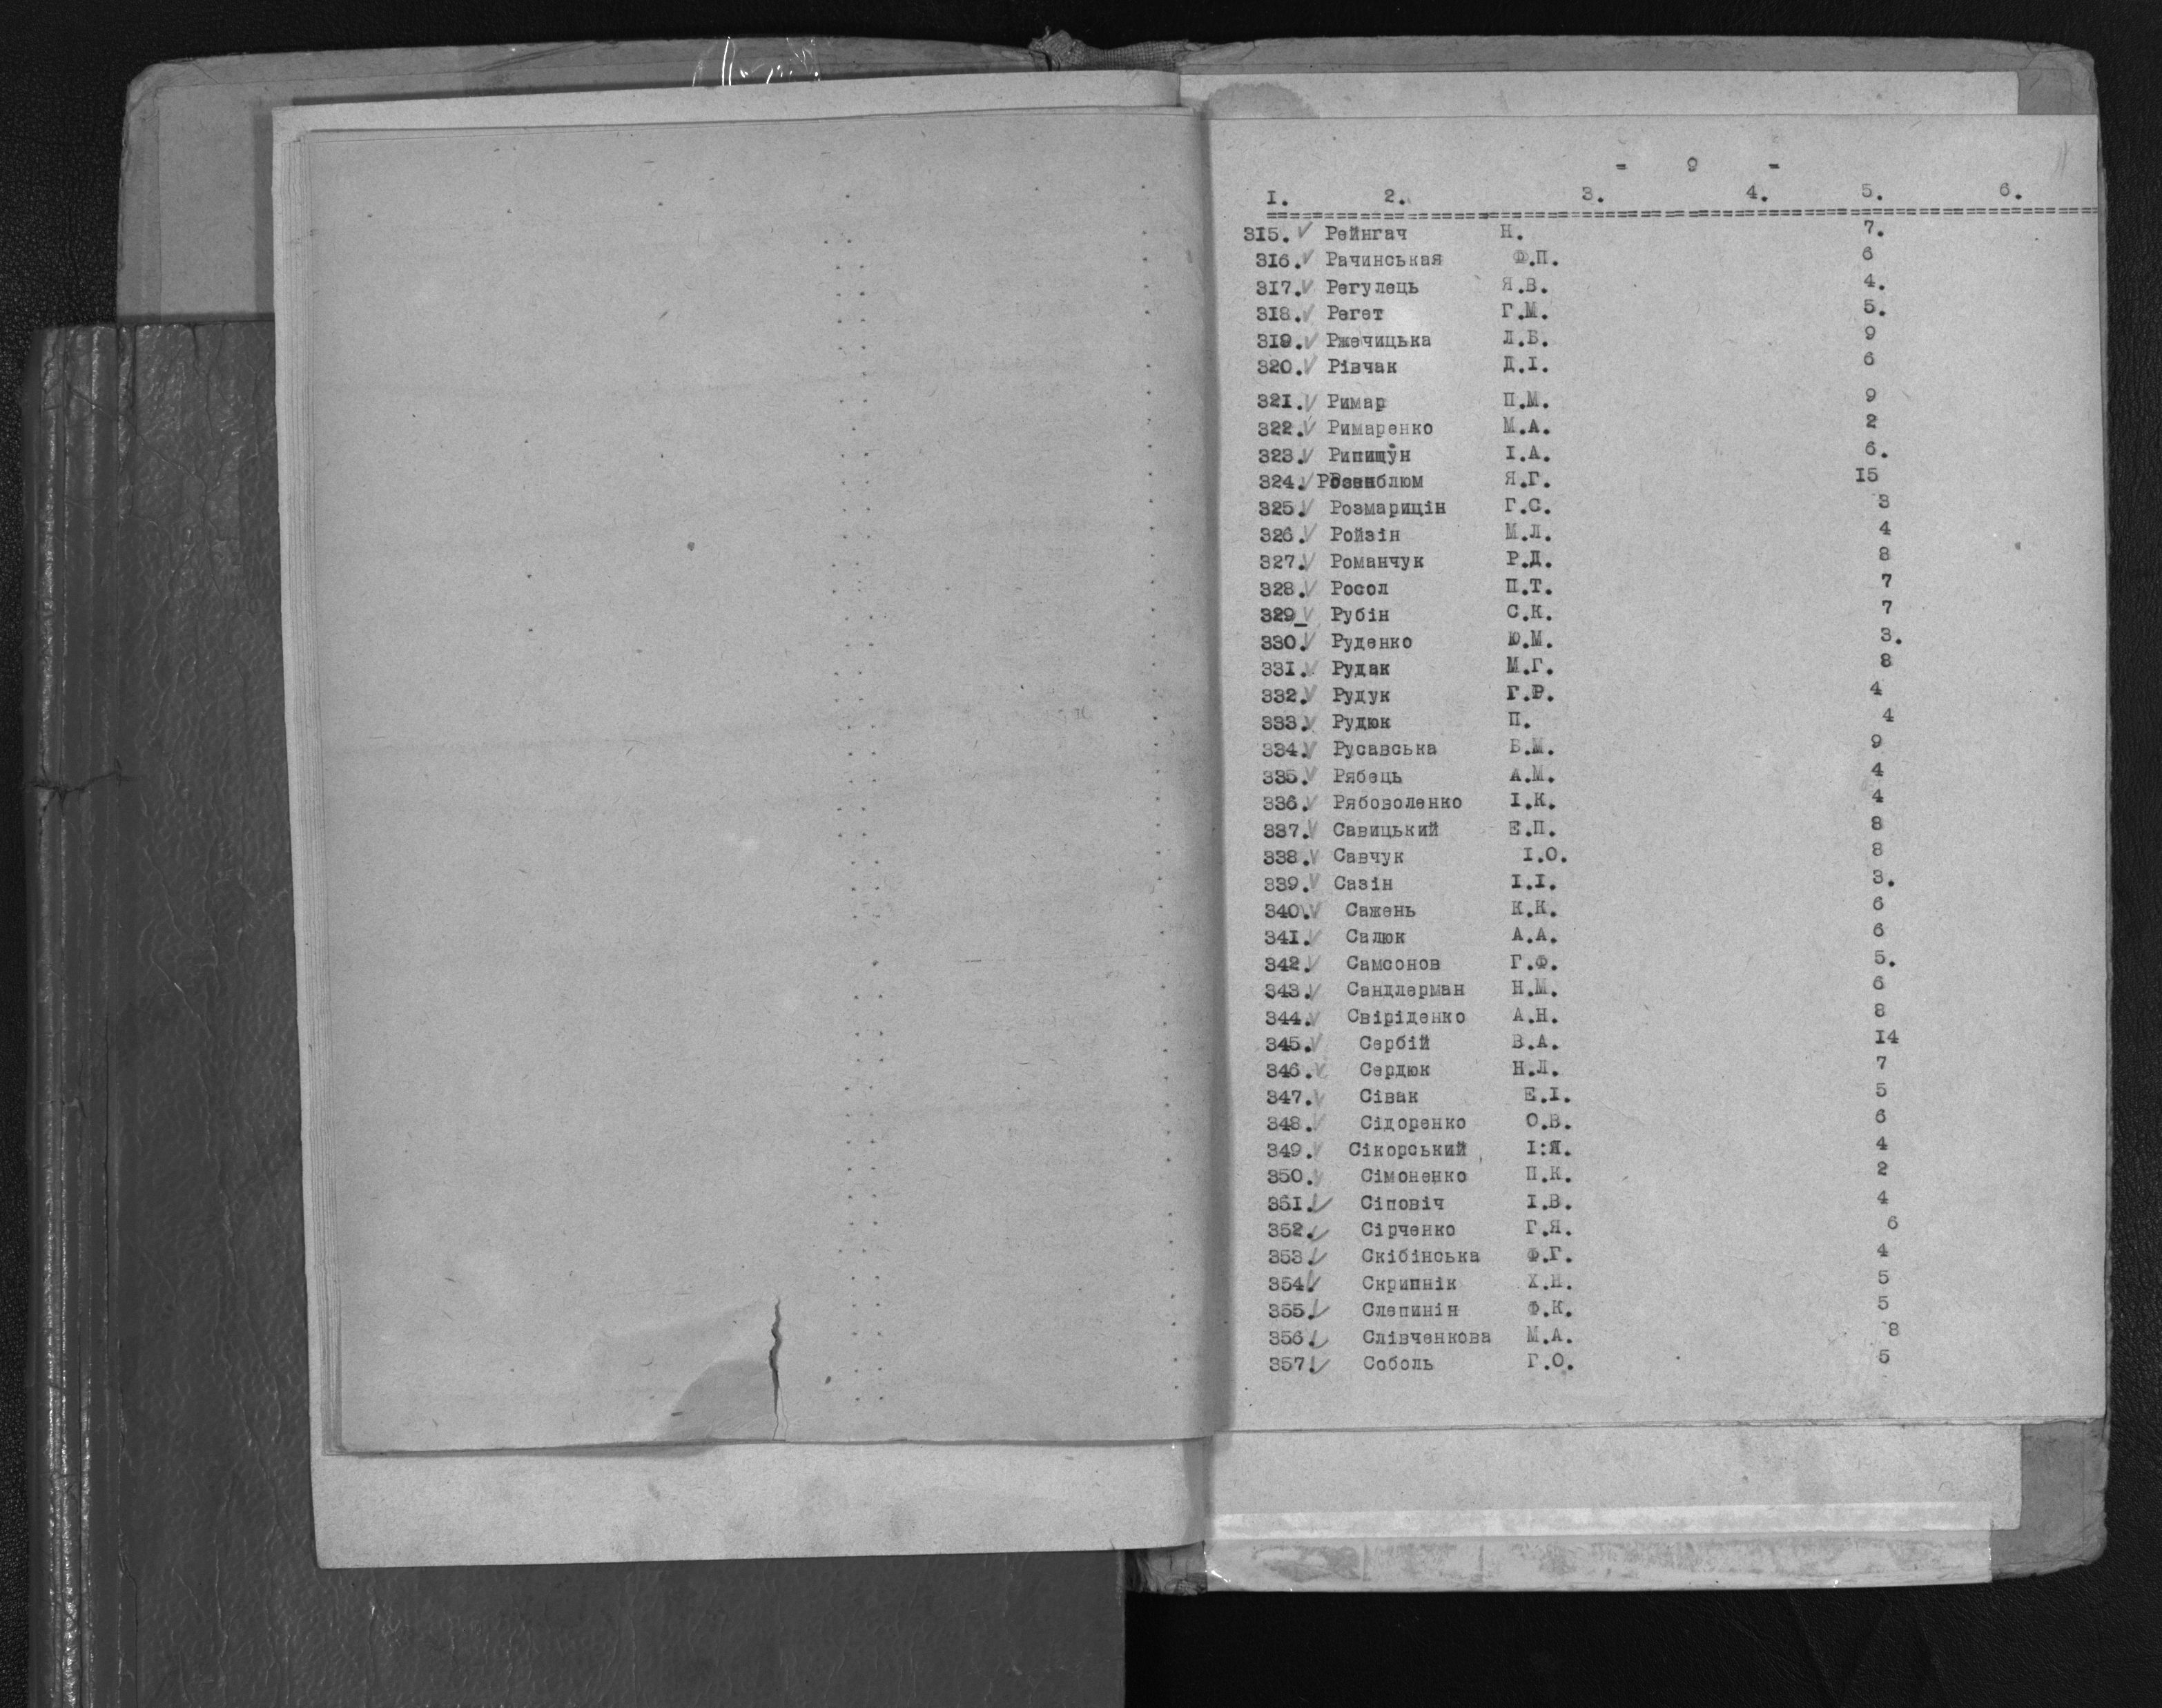 - 9 -
I. 2. 3. 4. 5. 6.
315. Рейнгач Н. 7.
316. Рачинськая Ф.П. 6
317. Регулець Я.В. 4.
318. Регет Г.М. 5.
319. Ржечицька Л.Б. 9
320. Рівчак Д.І. 6
321. Римар П.М. 9
322. Римаренко М.А. 2
323. Рипищун І.А. 6.
324. Розенблюм Я.Г. I5
325. Розмарицін Г.С. 3
326. Ройзін М.Л. 4
327. Романчук Р.Д. 8
328. Росол П.Т. 7
329_ Рубін С.К. 7
330. Руденко Ю.М. 3.
331. Рудак М.Г. 8
332. Рудук Г.Р. 4
333. Рудюк П. 4
334. Русавська Б.М. 9
335. Рябець А.М. 4
336. Рябоволенко І.К. 4
337. Савицький Е.П. 8
338. Савчук І.О. 8
339. Сазін І.І. 3.
340. Сажень К.К. 6
341. Салюк А.А. 6
342. Самсонов Г.Ф. 5.
343. Сандлерман Н.М. 6
344. Свіріденко А.Н. 8
345. Сербій В.А. I4
346. Сердюк Н.Л. 7
347. Сівак Е.І. 5
348. Сідоренко О.В. 6
349. Сікорський І:Я. 4
350. Сімоненко П.К. 2
351. Сіповіч І.В. 4
352. Сірченко Г.Я. 6
353. Скібінська Ф.Г. 4
354. Скрипнік Х.Н. 5
355. Слепинін Ф.К. 5
356. Слівченкова М.А. 8
357. Соболь Г.О. 5